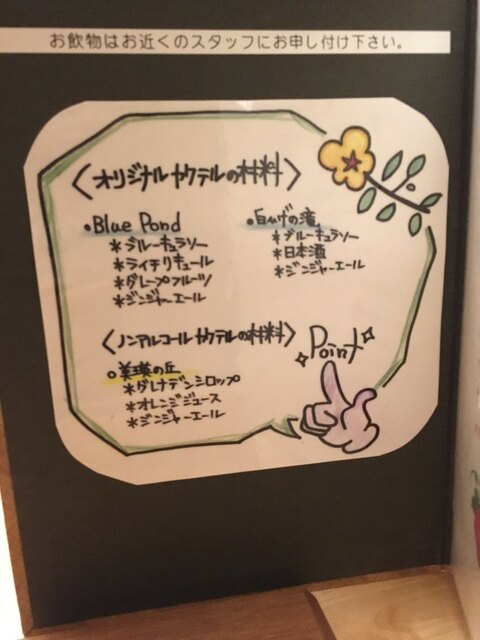 お飲物はお近くのスタッフにお申し付け下さい。
〈オリジナルカクテルの材料〉
•Blue Pond
＊ブルーキュラソー
＊ライチリキュール
＊グレープフルーツ
＊ジンジャーエール
•白ひげの滝
＊ブルーキュラソー
＊日本酒
＊ジンジャーエール
〈ノンアルコールカクテルの材料〉
○美瑛の丘
＊グレナデンシロップ
＊オレンジジュース
＊ジンジャーエール
Point